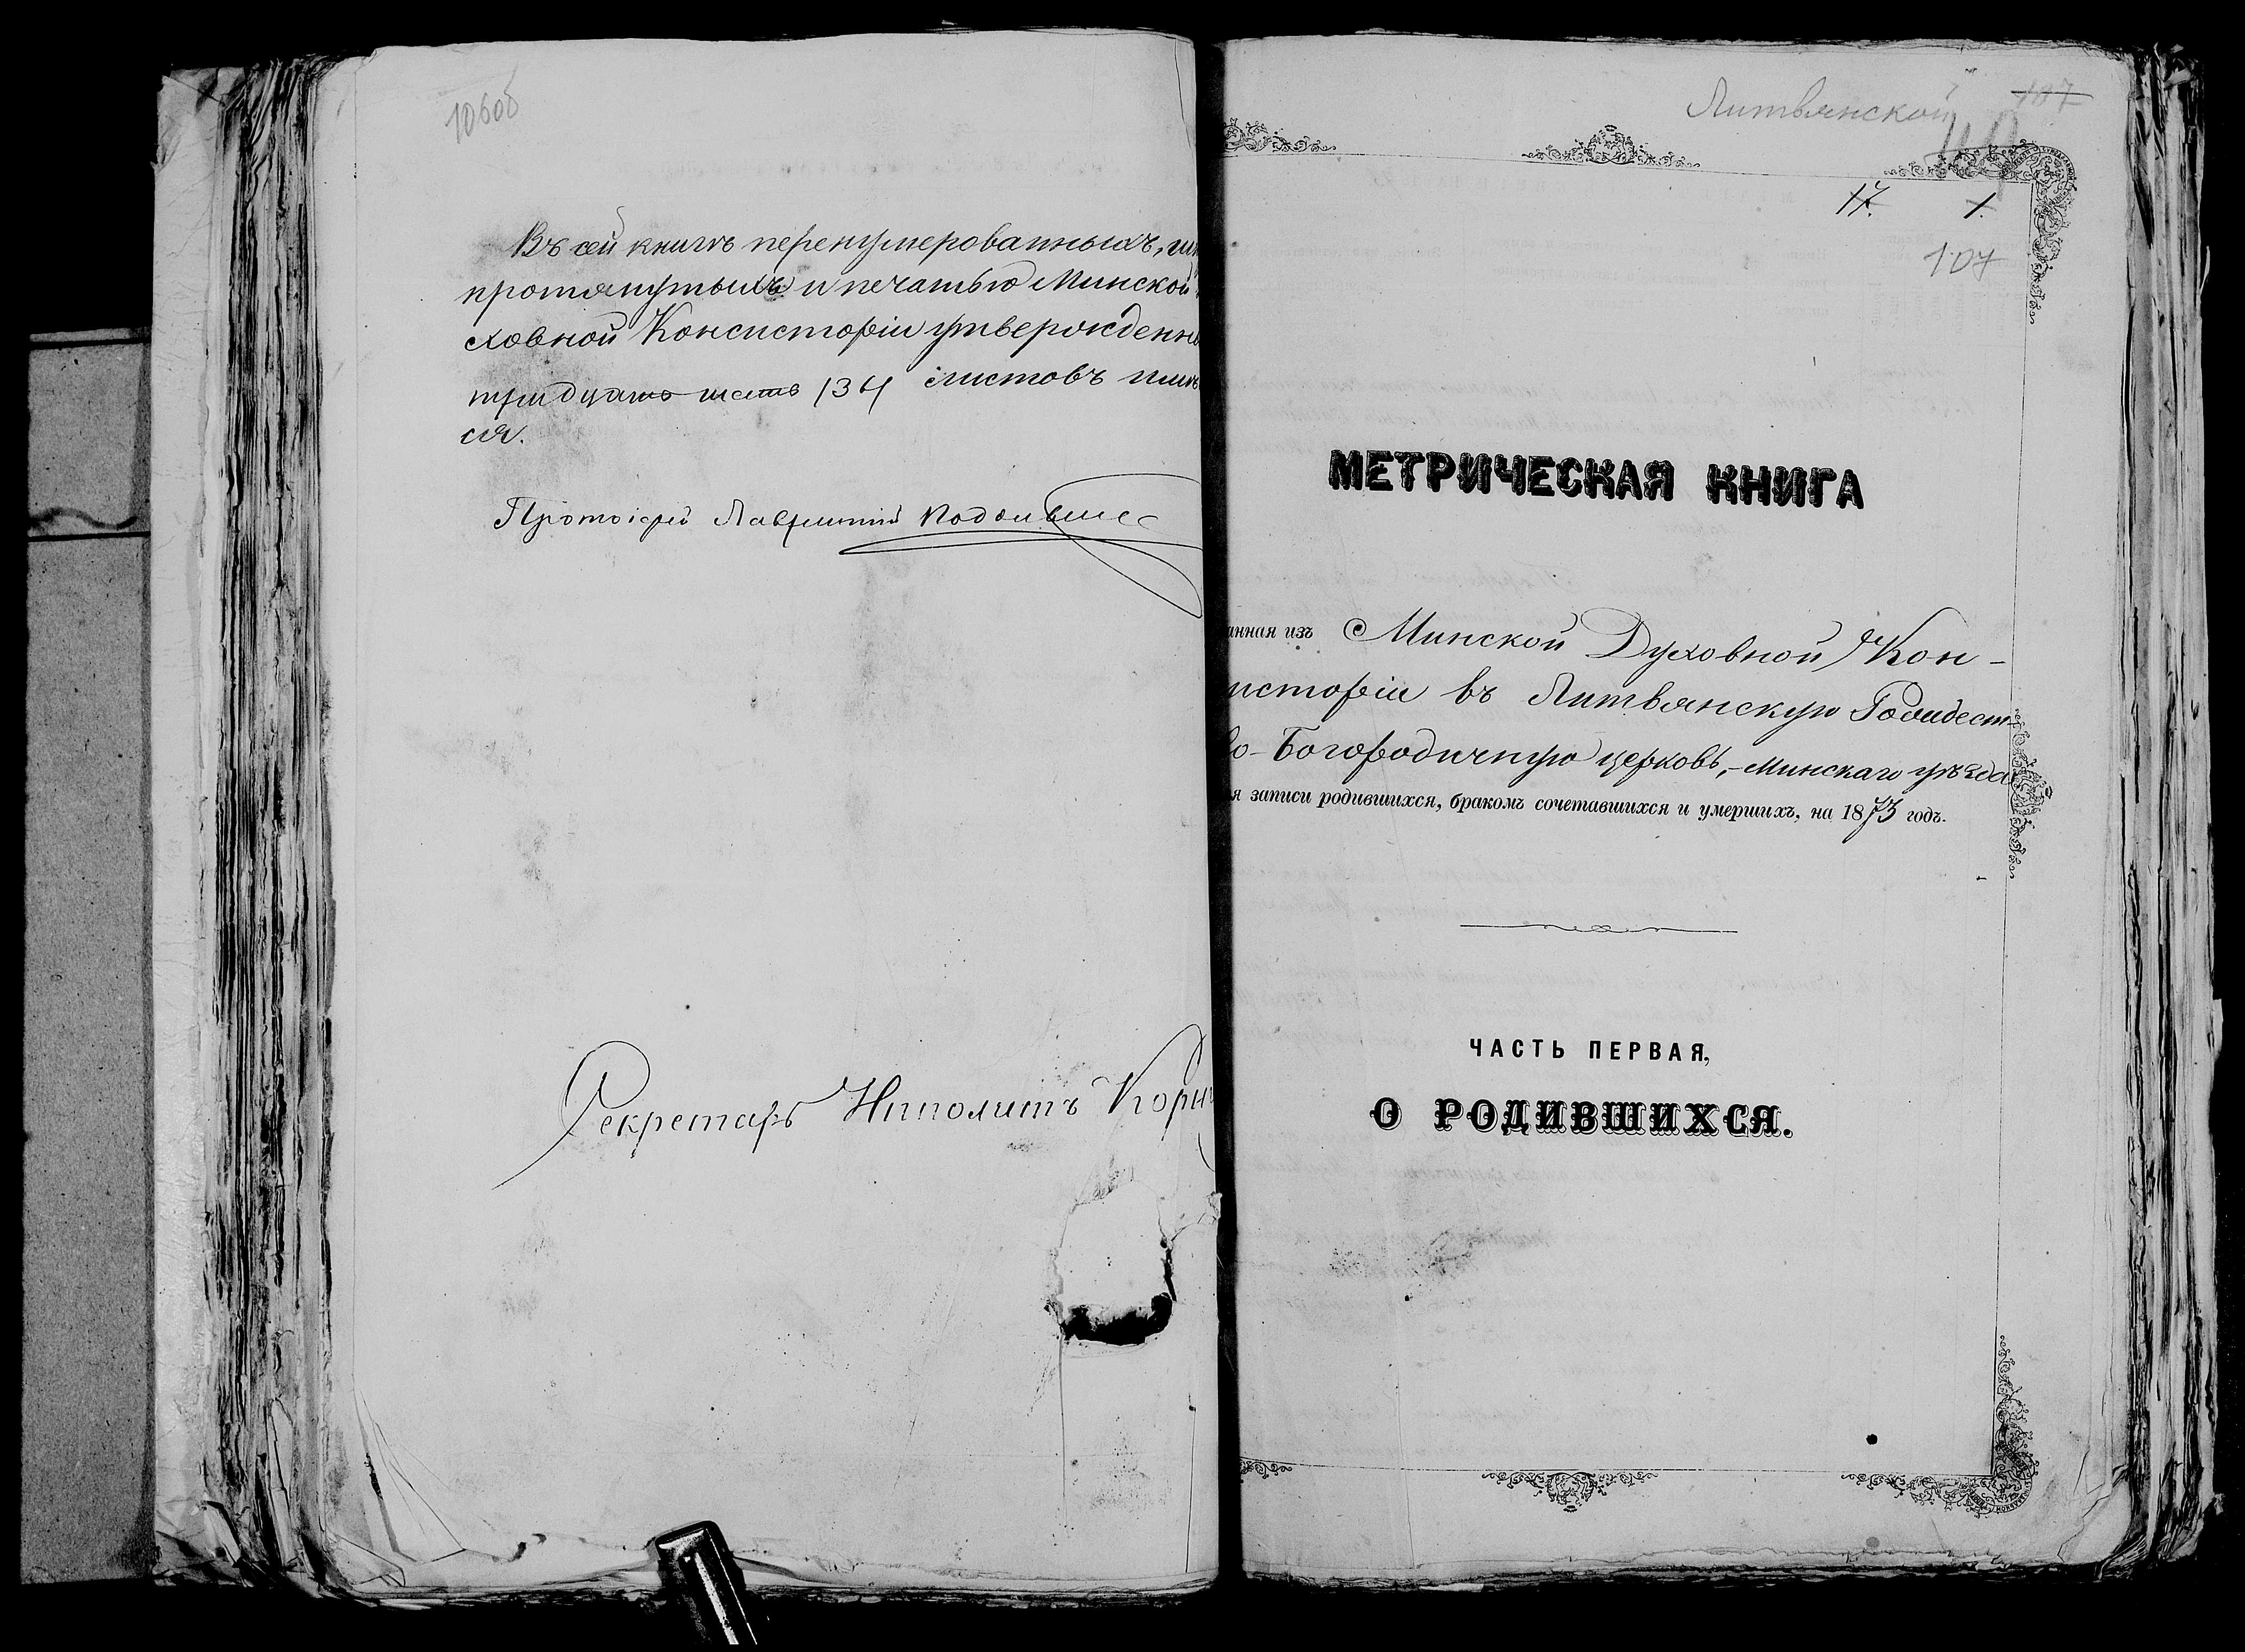 106об
Въ сей книгѣ перенумерованныхъ,
протянутыхъ и печатью Минской
ховной Консисторіи утвержденн
тридцать шесть 134 листовъ
ся.
Протоіерей Лаврентій
Секретарь Ипполитъ
Литвянской 107
110
17. 1.
107
МЕТРИЧЕСКАЯ КНИГА
анная изъ Минской Духовной Кон-
исторіи въ Литвянскую Рождест
во-Богородичную церковь, Минскаго уѣзда
я записи родившихся, бракомъ сочетавшихся и умершихъ, на 1873 годъ.
ЧАСТЬ ПЕРВАЯ,
О РОДИВШИХСЯ.